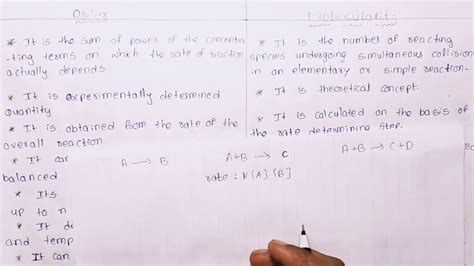 Order
Molecularity
* It is the sum of power of the concentra
-ting terms on which the rate of reaction
actually depends
* It is experimentally determined
quantity
* It is obtained from the rate of the
overall reaction.
* It
balanced
* Its
up to
* It
and temp
* It can
* It is the number of reacting
species undergoing simultaneous collision
in an elementary or simple reaction.
* It is theoretical concept.
* It is calculated on the basis of
the rate determining step.
A → B
A+B → C
A+B → C+D
rate : K[A][B]